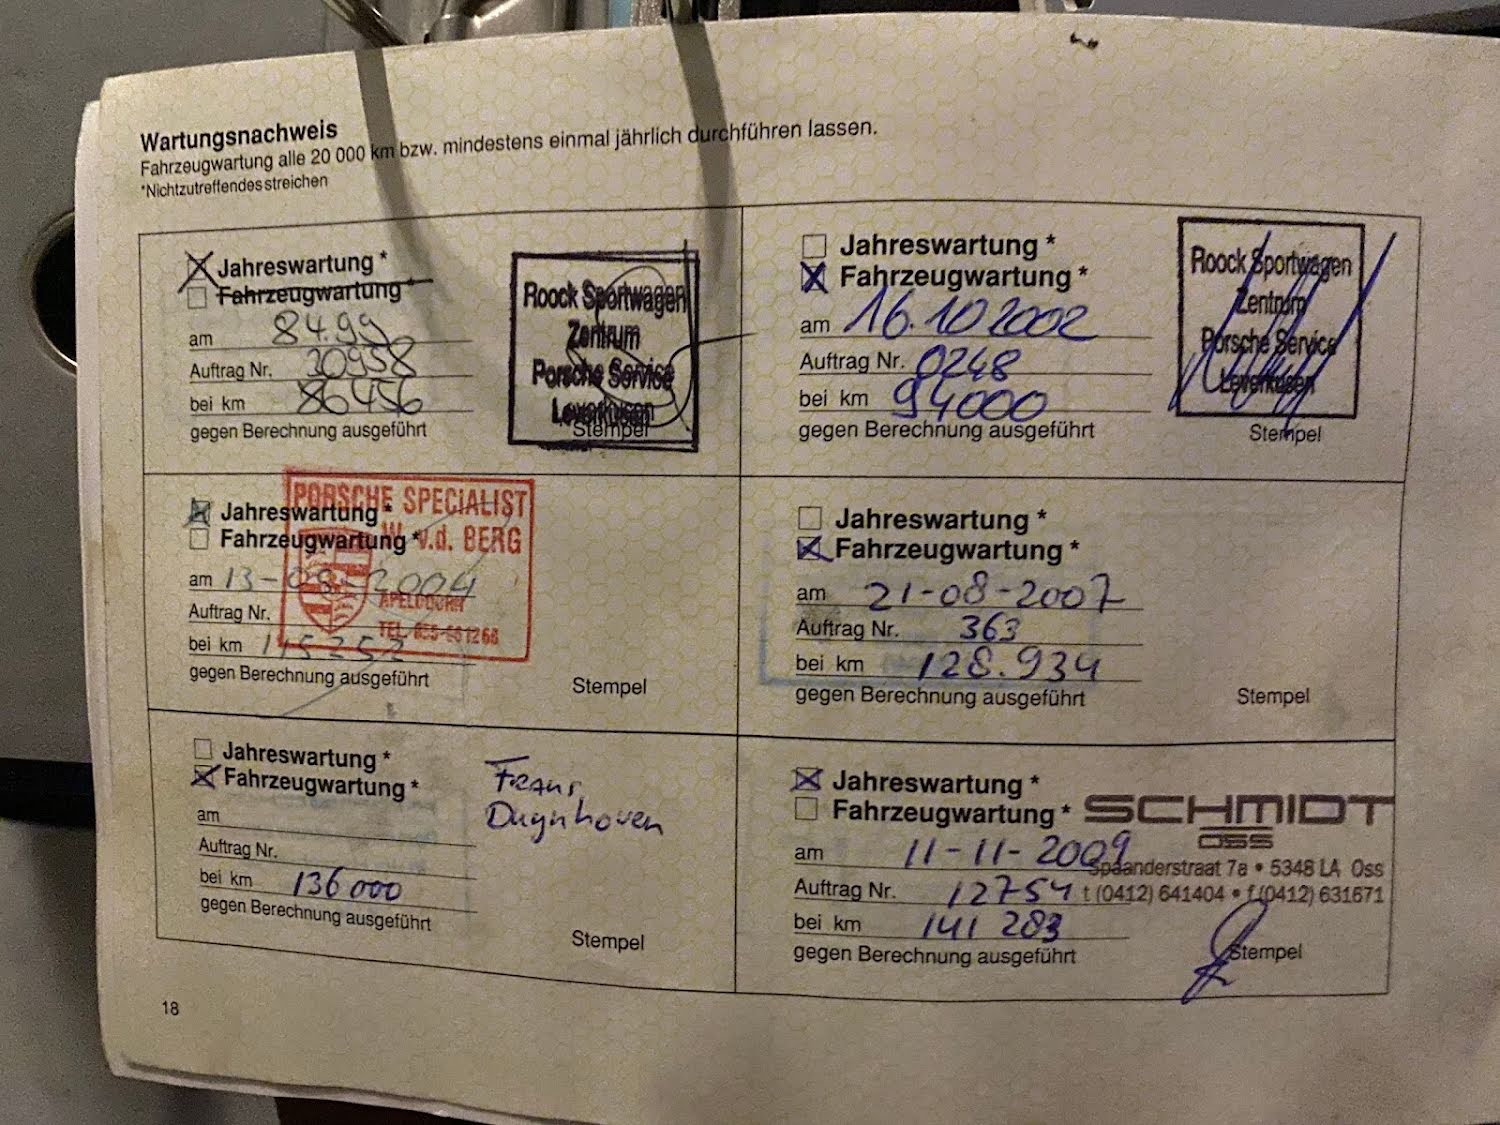 Wartungsnachweis
Fahrzeugwartung alle 20 000 km bzw. mindestens einmal jährlich durchführen lassen.
*Nichtzutreffendes streichen
Jahreswartung *
Fahrzeugwartung *
am 8.4.99
Auftrag Nr. 30958
bei km 86456
gegen Berechnung ausgeführt
Roock Sportwagen
Zentrum
Porsche Service
Leverkusen
Stempel
Jahreswartung *
Fahrzeugwartung *
am 16.10 2002
Auftrag Nr. 0248
bei km 94000
gegen Berechnung ausgeführt
Roock Sportwagen
Zentrum
Porsche Service
Leverkusen
Stempel
Jahreswartung *
Fahrzeugwartung *
am 13-08-2004
Auftrag Nr.
bei km 115252
gegen Berechnung ausgeführt
PORSCHE SPECIALIST
W. v.d. BERG
APELDOORN
TEL.
Stempel
Jahreswartung *
Fahrzeugwartung *
am 21-08-2007
Auftrag Nr. 363
bei km 128.934
gegen Berechnung ausgeführt
Stempel
Jahreswartung *
Fahrzeugwartung *
am
Auftrag Nr.
bei km 136000
gegen Berechnung ausgeführt
Frans
Stempel
Jahreswartung *
Fahrzeugwartung *
am 11-11-2009
Auftrag Nr. 12754
bei km 141 283
gegen Berechnung ausgeführt
SCHMIDT
OSS
Spaanderstraat 7a • 5348 LA Oss
t (0412) 641404 • f (0412) 631671
Stempel
18